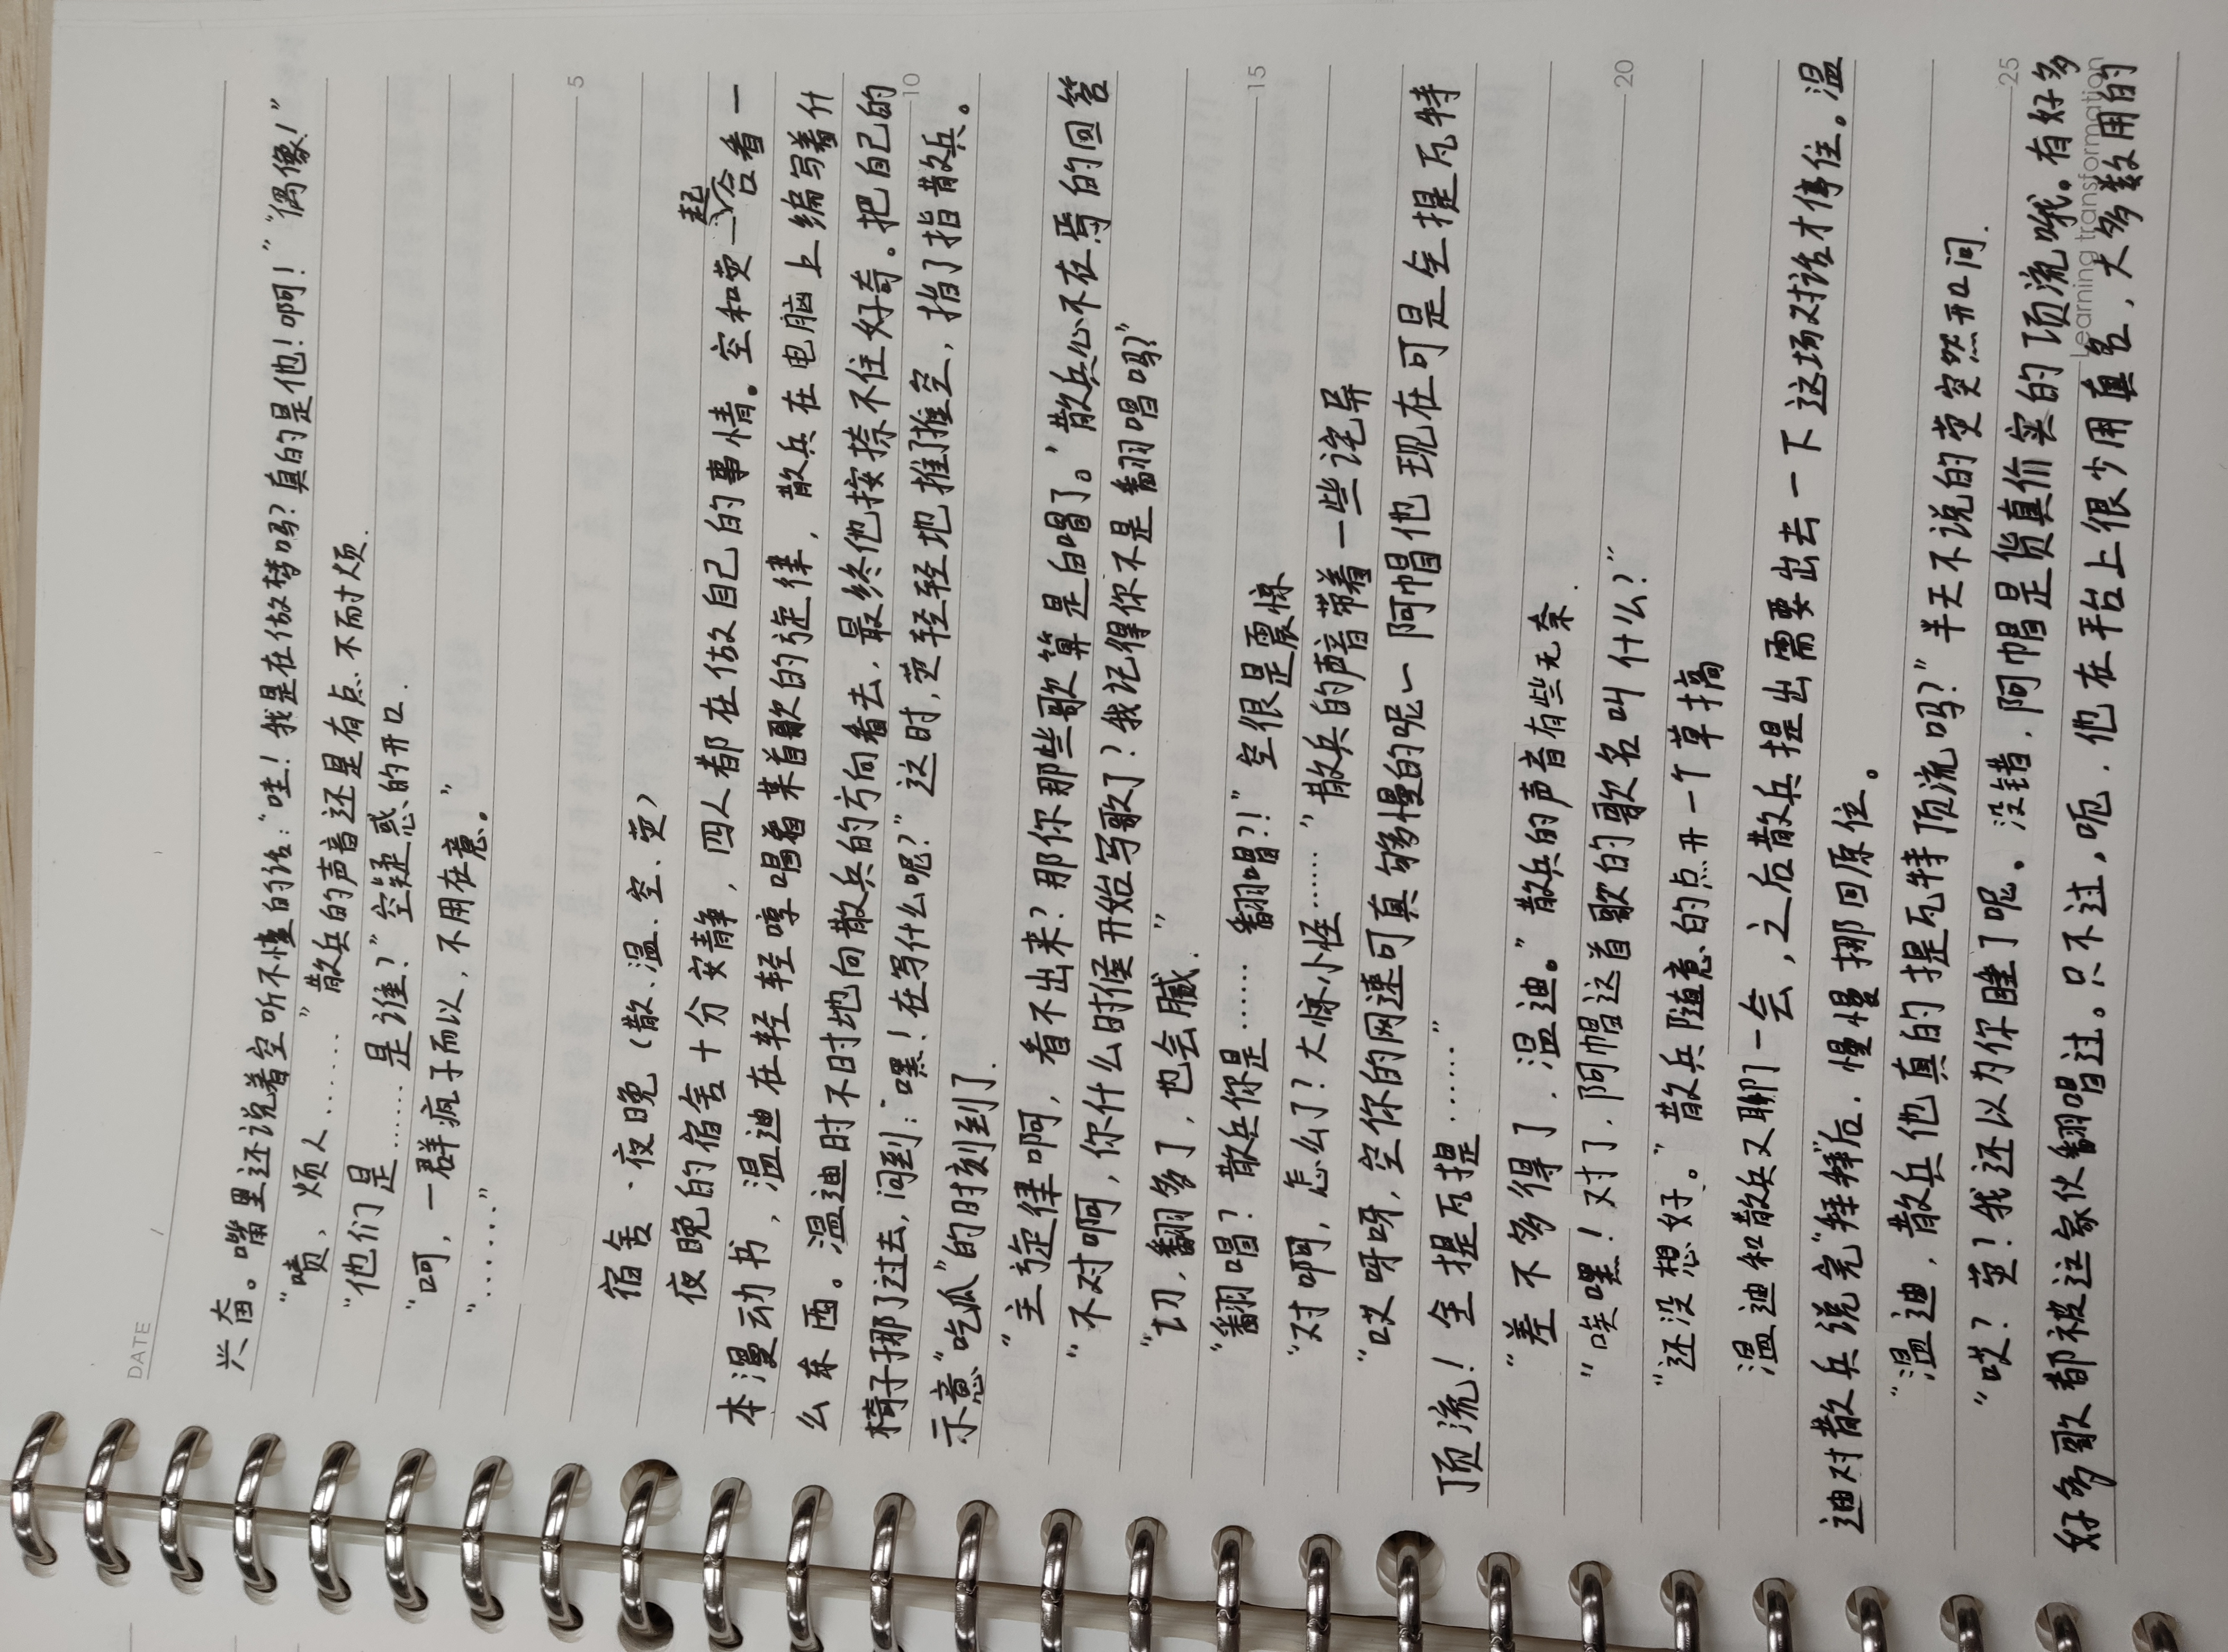 DATE
兴奋。嘴里还说着空听不懂的话:“哇！我是在做梦吗？真的是他！啊！”“偶像！”
“啧、烦人……”散兵的声音还是有点不耐烦.
“他们是……是谁？”空疑惑的开口.
“呵，一群疯子而以，不用在意。”
“……”
5
宿舍·夜晚(散、温、空、荧)
夜晚的宿舍十分安静，四人都在做自己的事情。空和荧一起合看一
本漫动书，温迪在轻轻哼唱着某首歌的旋律，散兵在电脑上编写着什
么东西。温迪时不时地向散兵的方向看去，最终他按捺不住好奇。把自己的
10
椅子挪了过去，问到：“嘿！在写什么呢？”这时，荧轻轻地推了推空，指了指散兵。
示意“吃瓜”的时刻到了.
“主旋律啊，看不出来？那你那些歌算是白唱了。”散兵心不在焉的回答
“不对啊，你什么时候开始写歌了？我记得你不是翻唱吗？”
“切，翻多了，也会腻.”
15
“翻唱？散兵你是……翻唱?！”空很是震惊
“对啊，怎么了？大惊小怪……”散兵的声音带着一些诧异
“哎呀呀，空你的网速可真够慢的呢~阿帽他现在可是全提瓦特
顶流！全提瓦提……”
“差不多得了，温迪。”散兵的声音有些无奈.
20
“唉嘿！对了，阿帽这首歌的歌名叫什么？”
“还没想好。”散兵随意的点开一个草搞
温迪和散兵又聊了一会，之后散兵提出需要出去一下这场对话才停住。温
迪对散兵说完“拜拜”后，慢慢挪回原位。
“温迪，散兵他真的提瓦特顶流吗？”半天不说的荧突然开口问.
25
“哎？荧？我还以为你睡了呢。没错，阿帽是货真价实的顶流哦。有好多
好多歌都被这家伙翻唱过。只不过，呃，他在平台上很少用真名，大多数用的
Learning transformation